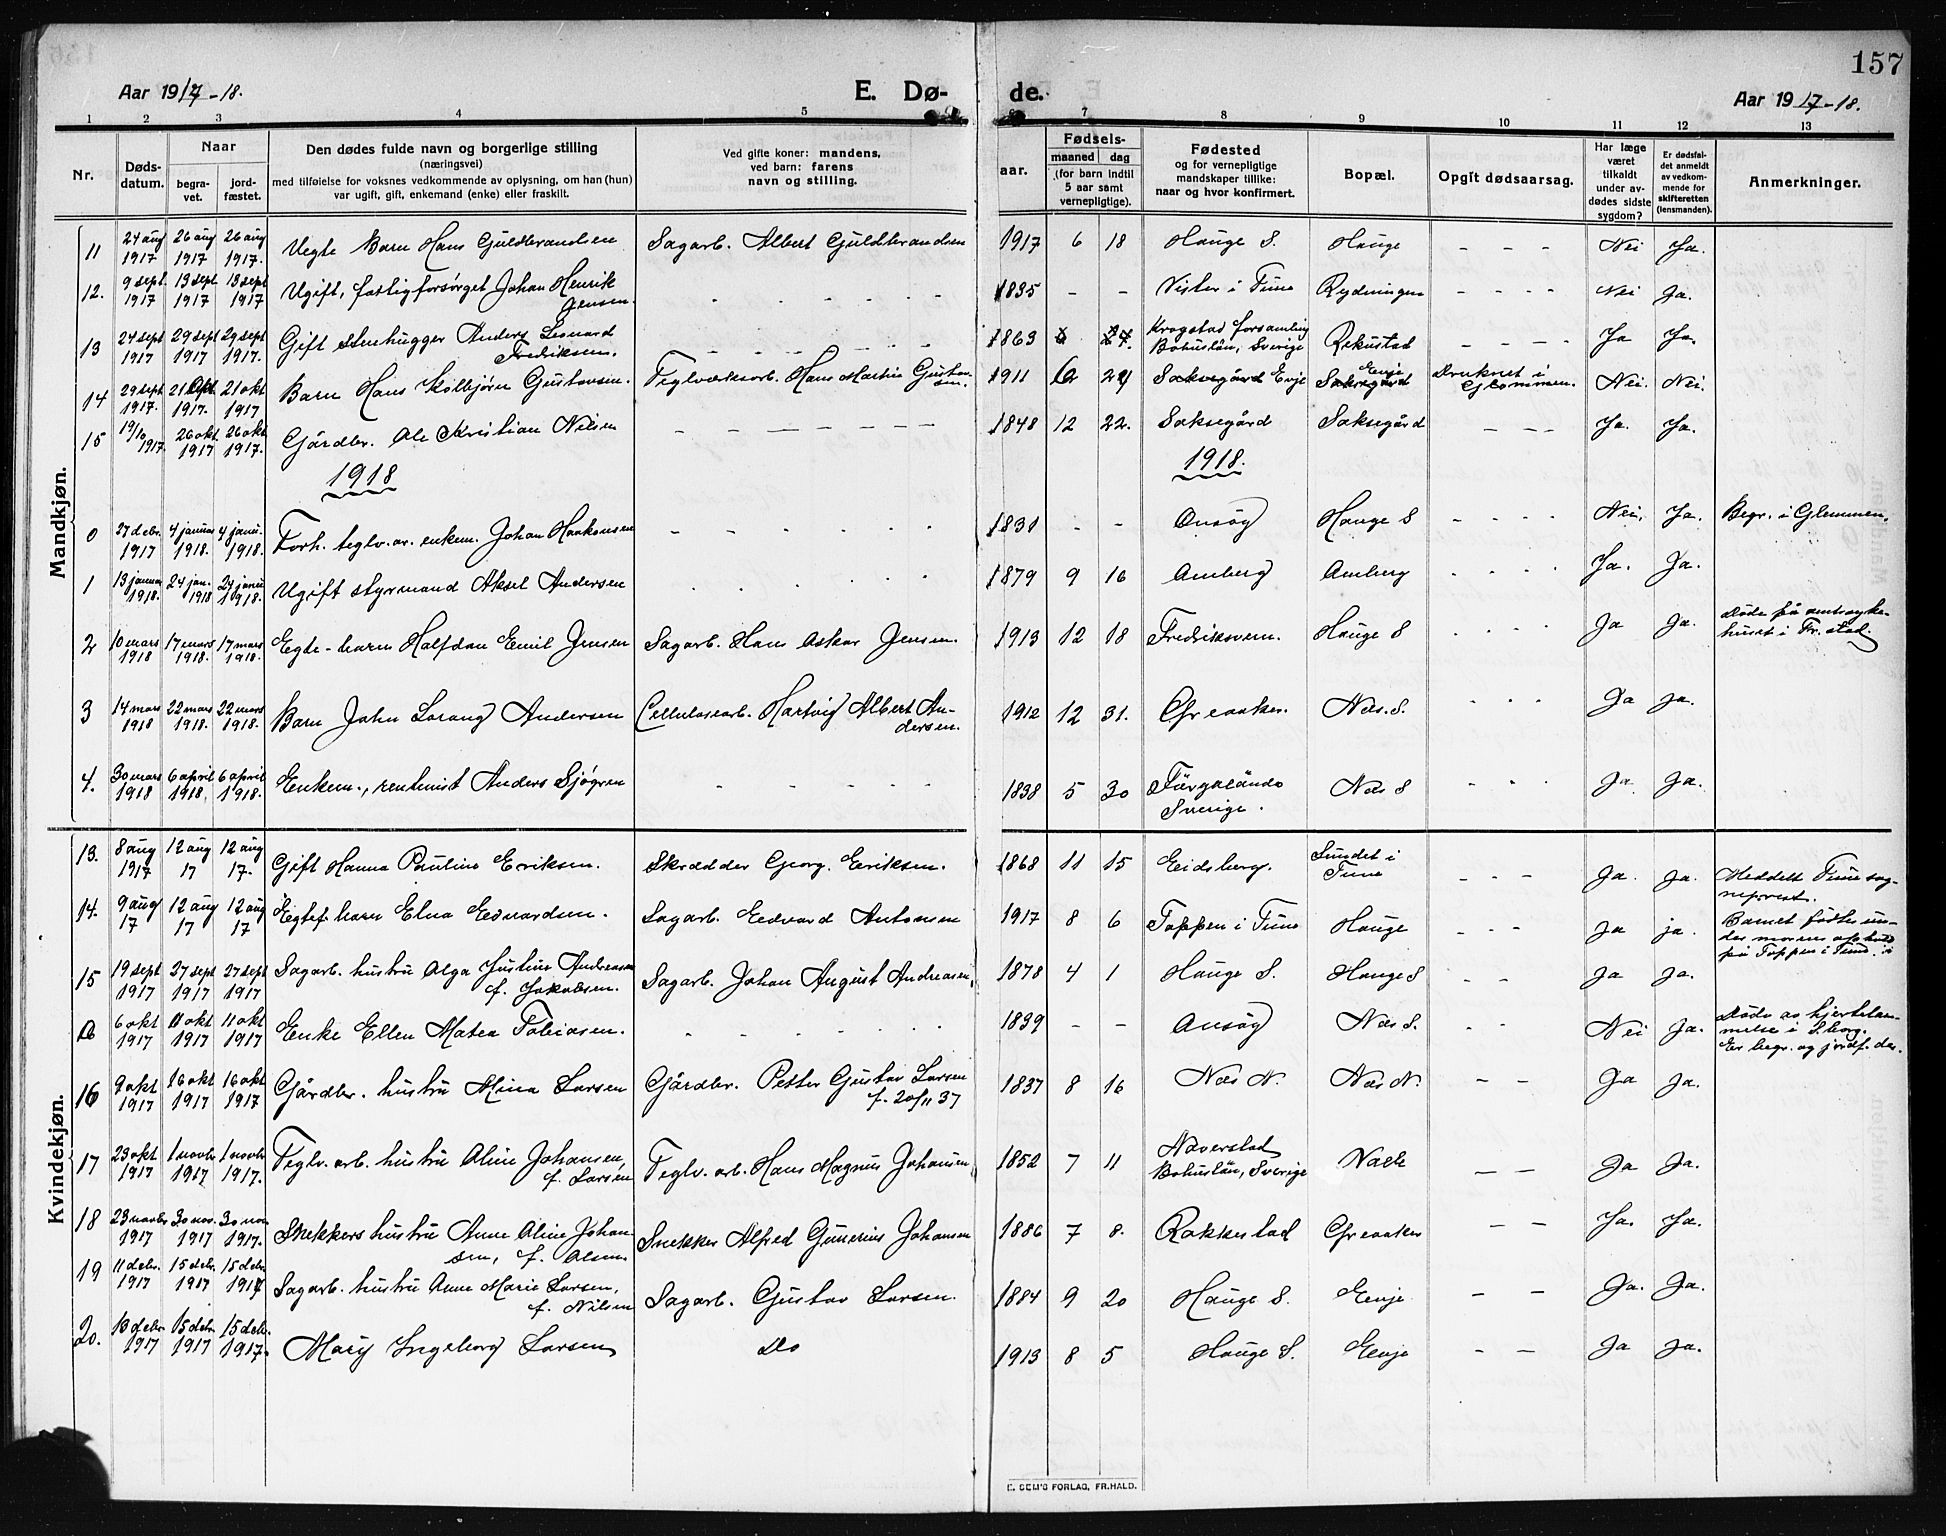 157
Aar 1917-18.
E. Dø-
de.
Aar 1917-18.
1 2 3 4 5 6 7 8 9 10 11 12 13
Nr.
Dødsdatum.
Naar
begravet.
jordfæstet.
Den dødes fulde navn og borgerlige stilling
(næringsvei)
med tilføielse for voksnes vedkommende av oplysning, om han (hun)
var ugift, gift, enkemand (enke) eller fraskilt.
Ved gifte koner: mandens,
ved barn: farens
navn og stilling.
Fødsels-
aar.
maaned dag
(for barn indtil
5 aar samt
vernepligtige).
Fødested
og for vernepligtige
mandskaper tillike:
naar og hvor konfirmert.
Bopæl.
Opgit dødsaarsag.
Har læge
været
tilkaldt
under av-
dødes sidste
sygdom?
Er dødsfal-
det anmeldt
av vedkom-
mende for
skifteretten
(lensmanden).
Anmerkninger.
Mandkjøn.
11 24 aug 1917 26 aug 1917 26 aug 1917. Uegte Barn Hans Guldbrandsen Sagarb. Albert Guldbrandsen 1917 6 18 Hauge S. Hauge - - - Nei Ja.
12. 9 sept 1917 13 sept 1917 13 sept 1917 Ugift, fattigforsørget Johan Henrik Jensen. 1835 - - Vister i Tune Rydningen - - - - Nei Ja.
13 24 sept 1917 29 sept 1917 29 sept 1917. Gift stenhugger Anders Leonard Fredriksen. 1863 Krogstad forsamling Bohuslän, Sverige Rekustad - - - - Ja Ja.
14 29 sept 1917. 21 okt 1917. 21 okt 1917 Barn Hans Kolbjørn Gustavsen. Teglverksarb. Hans Martin Gustavsen. 1911 24 Saksegård Evje Evje Saksegård Druknet i Glommen. Nei. Nei.
15 19/10 1917. 26 okt 1917 26 okt 1917. Gårdbr. Ole Kristian Nilsen - - - - - - - 1848 12 22. Saksegård Saksegård - - - - Ja. Ja.
1918
1918.
0 27 debr. 1917 4 januar 1918. 4 janu. 1918. Forh. teglv. ar. enkem. Johan Haakonsen - - 1831 - - Onsøy Hauge S - - - - Nei. Ja. Begr. i Glemmen.
1 13 januar 1918. 24 jan. 1918 24 janu 1918. Ugift styrmand Aksel Andersen 1879 9 16 Amberg Amberg - - - - Ja. Ja.
2 10 mars 1918 17 mars 1918. 17 mars 1918. Egte-barn Halfdan Emil Jensen Sagarb. Hans Oskar Jensen. 1913 12 18 Fredriksvern. Hauge S - - - - Ja Ja. Døde på amtsygehuset i Fr.stad.
3 14 mars 1918 22 mars 1918. 22 mars 1918. Barn John Lorang Andersen Cellulosearb. Hartvig Albert Andersen. 1912 12 31. Greaaker. Næs. S. - - - Ja Ja.
4. 30 mars 1918 6 april 1918. 6 april 1918. Enkem., rentenist Anders Sjøgren 1838 5 30 Färgelända Sverige. Næs S - - Ja. Ja.
Kvindekjøn.
13. 8 aug 1917 12 aug 17 12 aug 17. Gift Hanna Pauline Eriksen. Skrædder Georg. Eriksen. 1868 11 15 Eidsberg. Sundet i Tune - - - Ja. Ja. Meddelt Tune sogneprest.
14. 9 aug 17 12 aug 17 12 aug 17 Egtef. barn Elna Edvardsen. Sagarb. Edvard Antonsen 1917 8 6 Toppen i Tune Hauge - - - Ja ja. Barnet fødtes under morens ophold på Toppen i Tune.
15 19 sept 1917 27 sept 1917 27 sept 1917 Sagarb. hustru Olga Justine Andreasen f. Jakobsen. Sagarb. Johan August Andreasen. 1878 4 1 Hauge S. Hauge S - - Ja Ja.
0 6 okt 1917 11 okt 1917 11 okt 1917 Enke Ellen Matea Tobiasen. 1839 - - Onsøy Næs S. - - Nei Ja. Døde av hjertelammelse i S.borg. Er begr. og jordf. der.
16 9 okt 1917 16 okt 1917 16 okt 1917 Gårdbr. hustru Mina Larsen Gårdbr. Petter Gustav Larsen f. 20/11 37 1837 8 16 Næs N. Næs N. - - Ja Ja.
17 23 okt 1917 1 novbr 1917 1 novbr 1917. Teglv. arb. hustru Oline Johansen, f. Larsen Teglv. arb. Hans Magnus Johansen 1852 7 11 Naverstad Bohuslän, Sverige Nalk - - Ja Ja.
18 23 novbr 1917 30 nov. 1917 30 nov 1917. Snekkers hustru Anne Oline Johansen, f. Olsen. Snekker Alfred Gunerius Johansen 1886 7 8. Rakkestad Greaaker - - Ja. Ja.
19 11 debr. 1917 15 debr. 1917 15 debr. 1917 Sagarb. hustru Anne Marie Larsen, f. Nilsen Sagarb. Gustav Larsen. 1884 9 20 Hauge S. Evje - - Ja. Ja.
20. 10 debr. 1917 15 debr. 1917 15 debr. 1917. Mary Ingeborg Larsen Do 1913 8 5 Hauge S. Evje - - Ja Ja.
E. SEM'S FORLAG, FR.HALD.